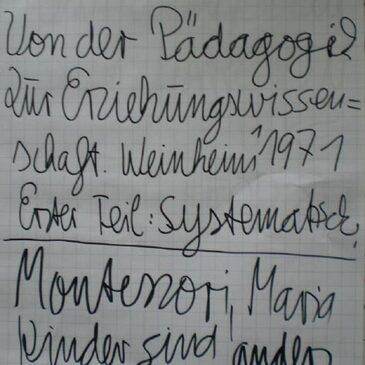 Von der Pädagogik
zur Erziehungswissen=
schaft. Weinheim ¹1971
Erster Teil: Systematisch.
Montessori, Maria
Kinder sind anders